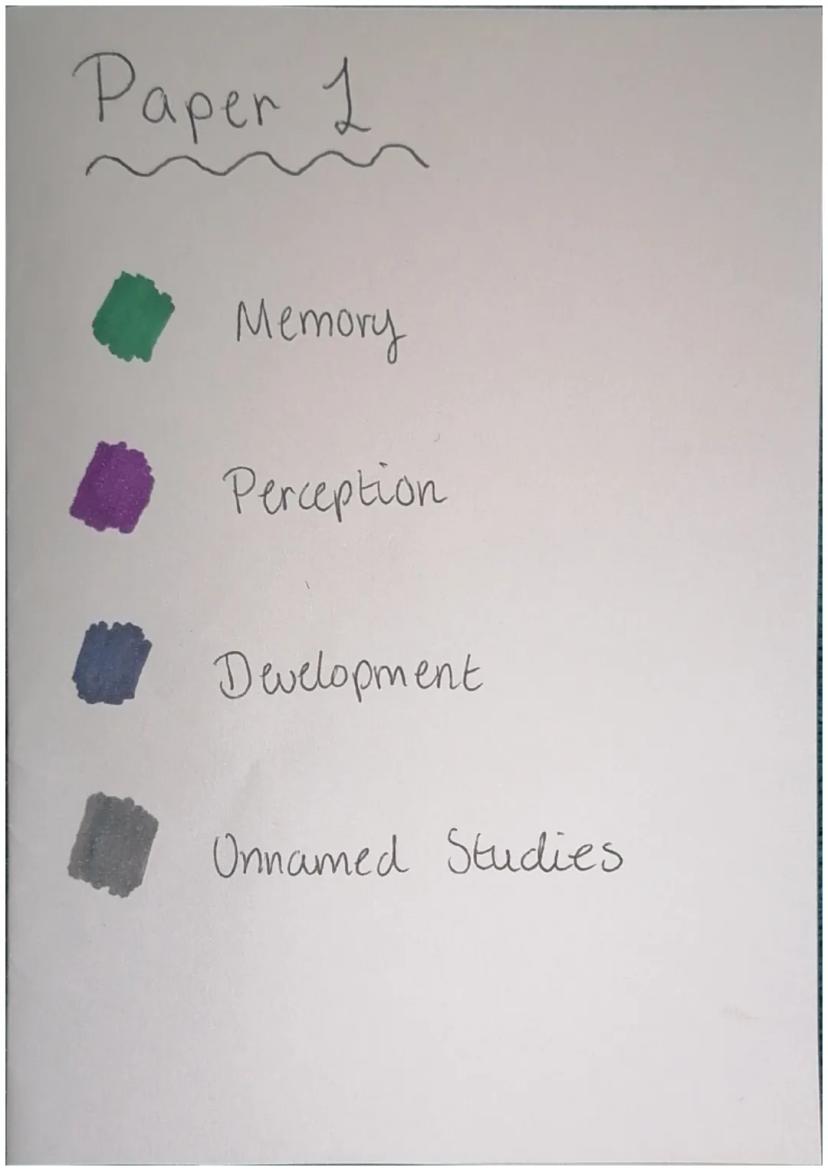 Paper 1
Memory
Perception
Development
Unnamed Studies